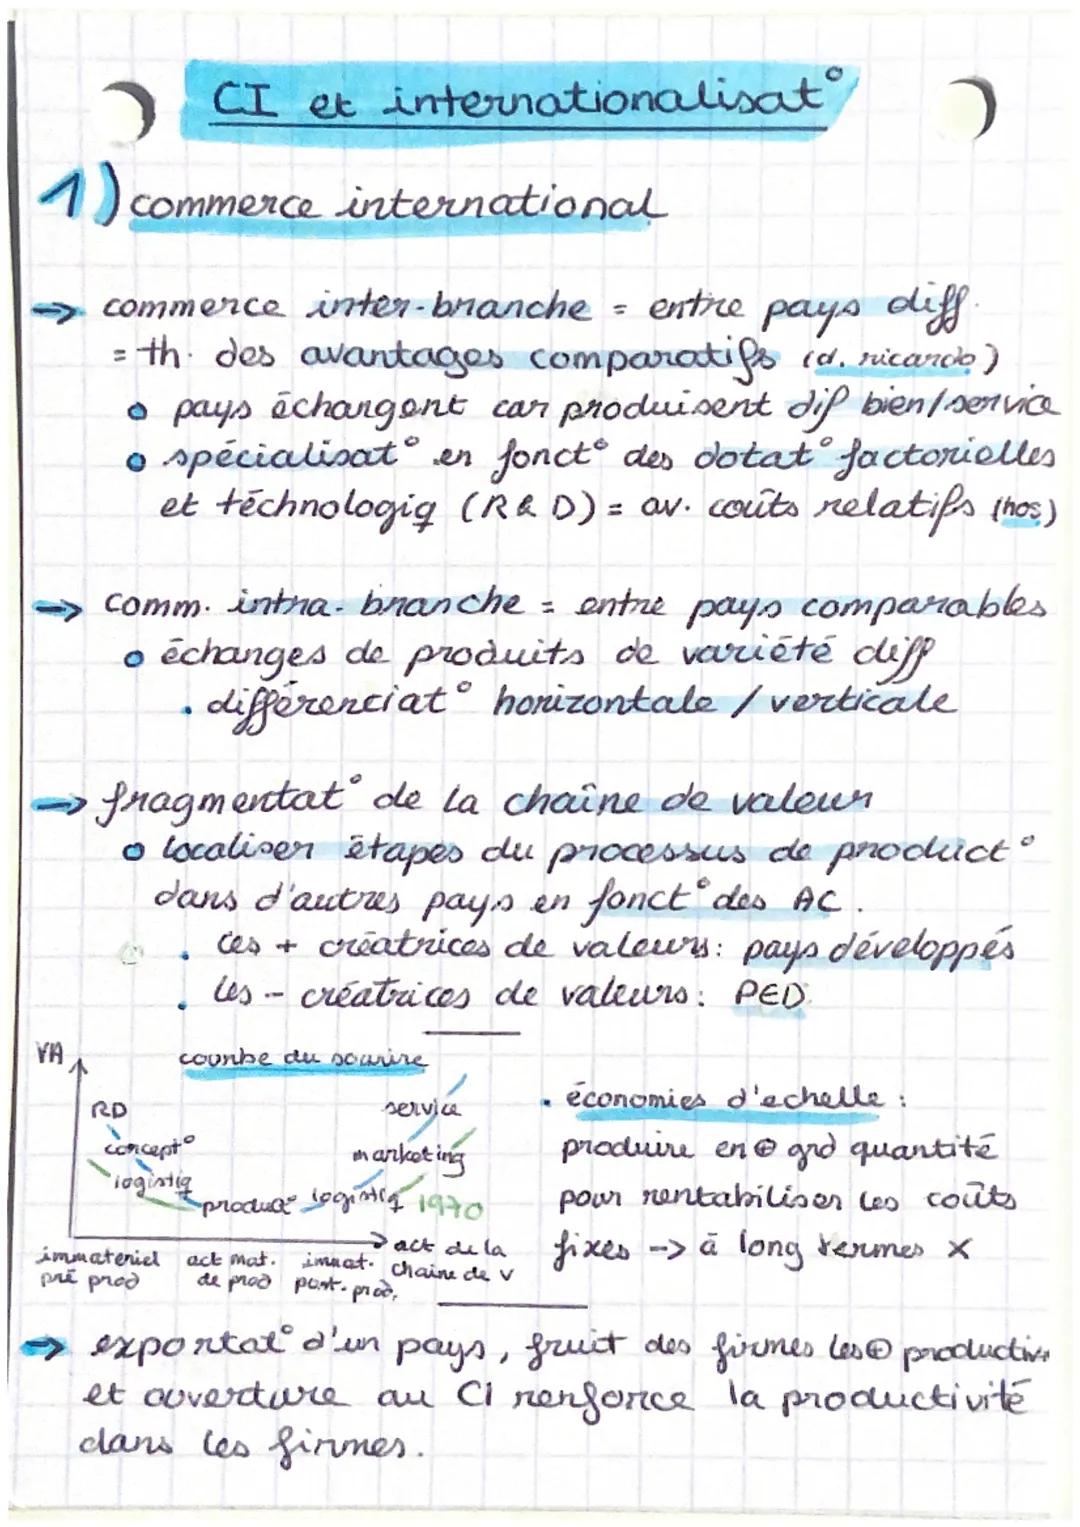 CI et internationalisat°
1) commerce international
→ commerce inter-branche = entre pays diff.
= th. des avantages comparatifs (d. ricardo)
o pays échangent car produisent dif bien/service
o spécialisat° en fonct° des dotat° factorielles
et téchnologiq (R & D) = av. coûts relatifs (hos)
→ comm. intra-branche = entre pays comparables
o échanges de produits de variété diff
. différenciat° horizontale / verticale
→ fragmentat° de la chaîne de valeur
o localiser étapes du processus de product°
dans d'autres pays en fonct° des AC.
. les + créatrices de valeurs: pays développés
. les - créatrices de valeurs: PED.
VA
courbe du sourire
RD
concept°
logistiq
product°
logistiq
marketing
service
1970
act de la chaine de v
immateriel pré prod
act mat. de prod
immat. post-prod.
. économies d'echelle :
produire en ⊕ grd quantité
pour rentabiliser les coûts
fixes --> à long termes X
→ exportat° d'un pays, fruit des firmes les ⊕ productives
et ouverture au CI renforce la productivité
dans les firmes.